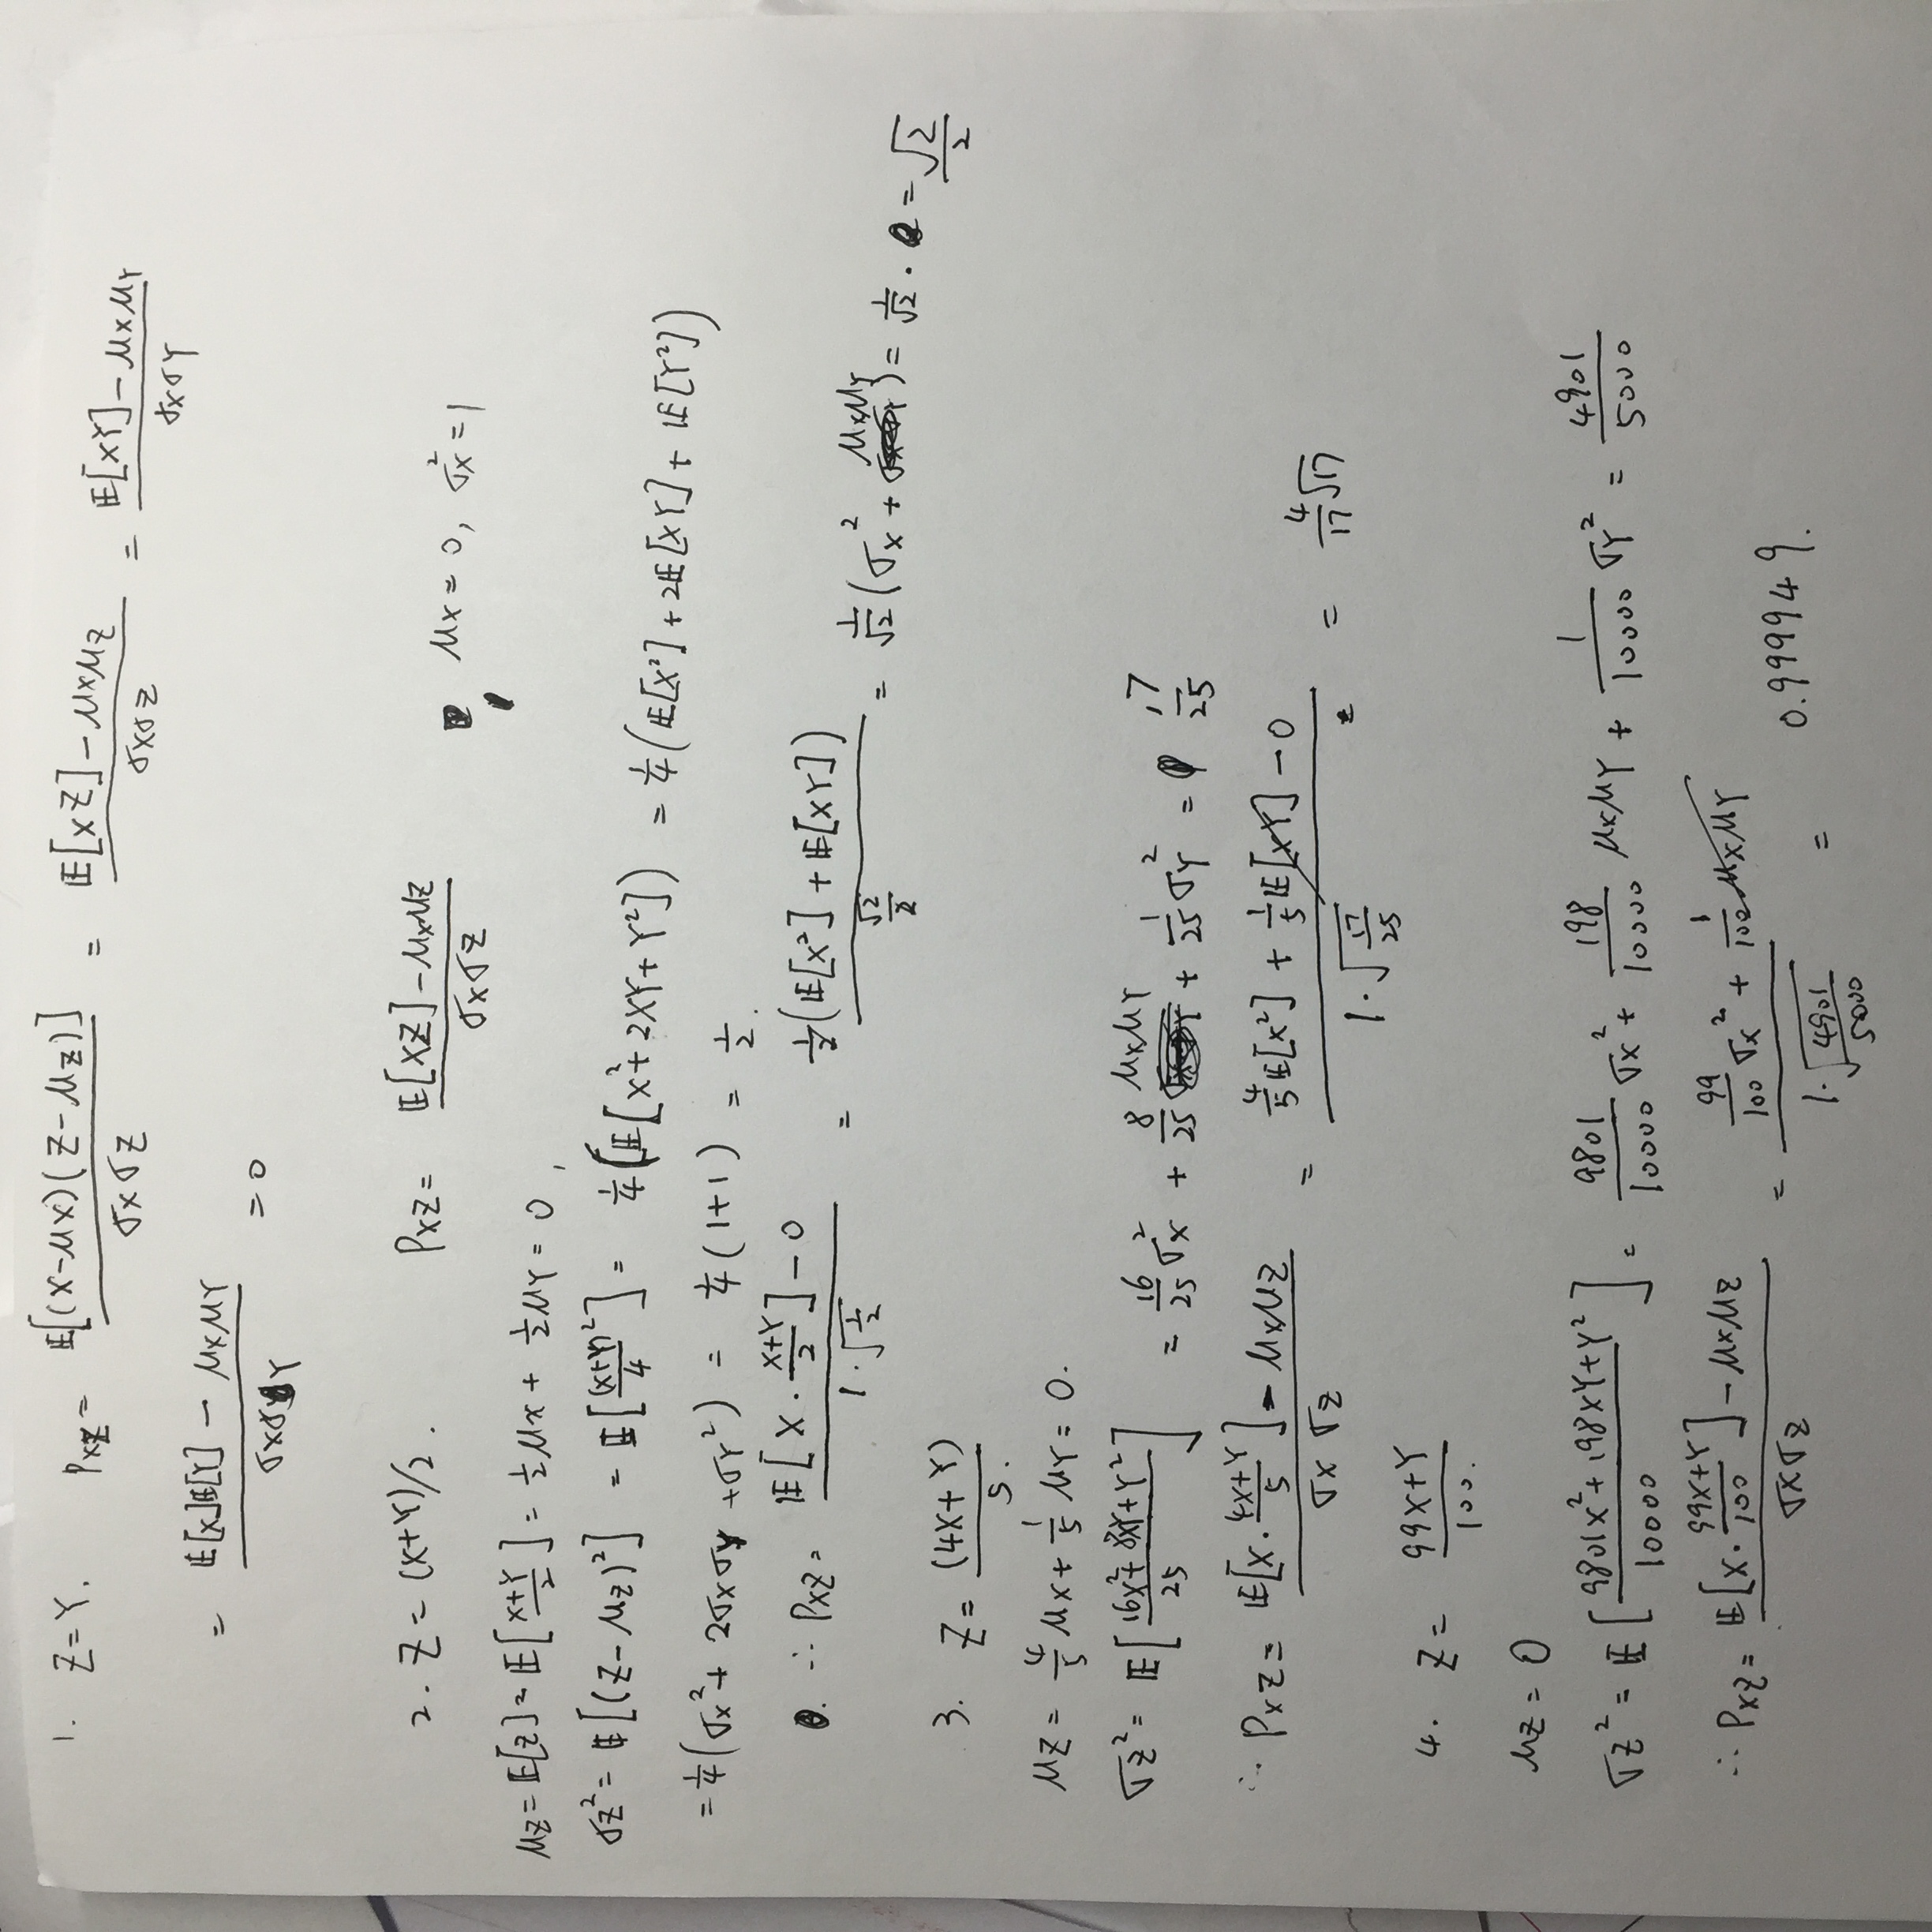 1. Z=Y. ρxz = E[(X-μx)(Z-μz)] / σxσz = E[XZ]-μxμz / σxσz = E[XY]-μxμY / σxσY
= E[X]E[Y] - μxμY / σxσY = 0
2. Z = (X+Y)/2. ρxz = E[XZ]-μxμz / σxσz μx = 0, σx² = 1
μz = E[Z] = E[X+Y / 2] = 1/2 μx + 1/2 μY = 0,
σz² = E[(Z-μz)²] = E[(X+Y)² / 4] = 1/4 (E[X²+2XY+Y²]) = 1/4 (E[X²]+2E[XY]+E[Y²])
= 1/4 (σx² + 2σxσy + σY²) = 1/4 (1+1) = 1/2.
∴ ρxz = E[X · X+Y / 2] - 0 / 1·√1/2 = 1/2 (E[X²] + E[XY]) / √2/2 = 1/√2 (σx² + μxμY) = 1/√2 · = √2/2
3. Z = (4X+Y) / 5.
μz = 4/5 μx + 1/5 μY = 0.
σz² = E[16X²+8XY+Y² / 25] = 16/25 σx² + 8/25 μxμY + 1/25 σY² = 17/25
∴ ρxz = E[X · 4X+Y / 5] - μxμz / σx σz = 4/5 E[X²] + 1/5 E[XY] - 0 / 1·√17/25 = 4/17 √17
4. Z = 99X+Y / 100.
μz = 0
σz² = E[9801X²+198XY+Y² / 10000] = 9801/10000 σx² + 198/10000 μxμY + 1/10000 σY² = 4901/5000
∴ ρxz = E[X · 99X+Y / 100] - μxμz / σxσz = 99/100 σx² + 1/100 μxμY / 1·√4901/5000 = 0.999949.